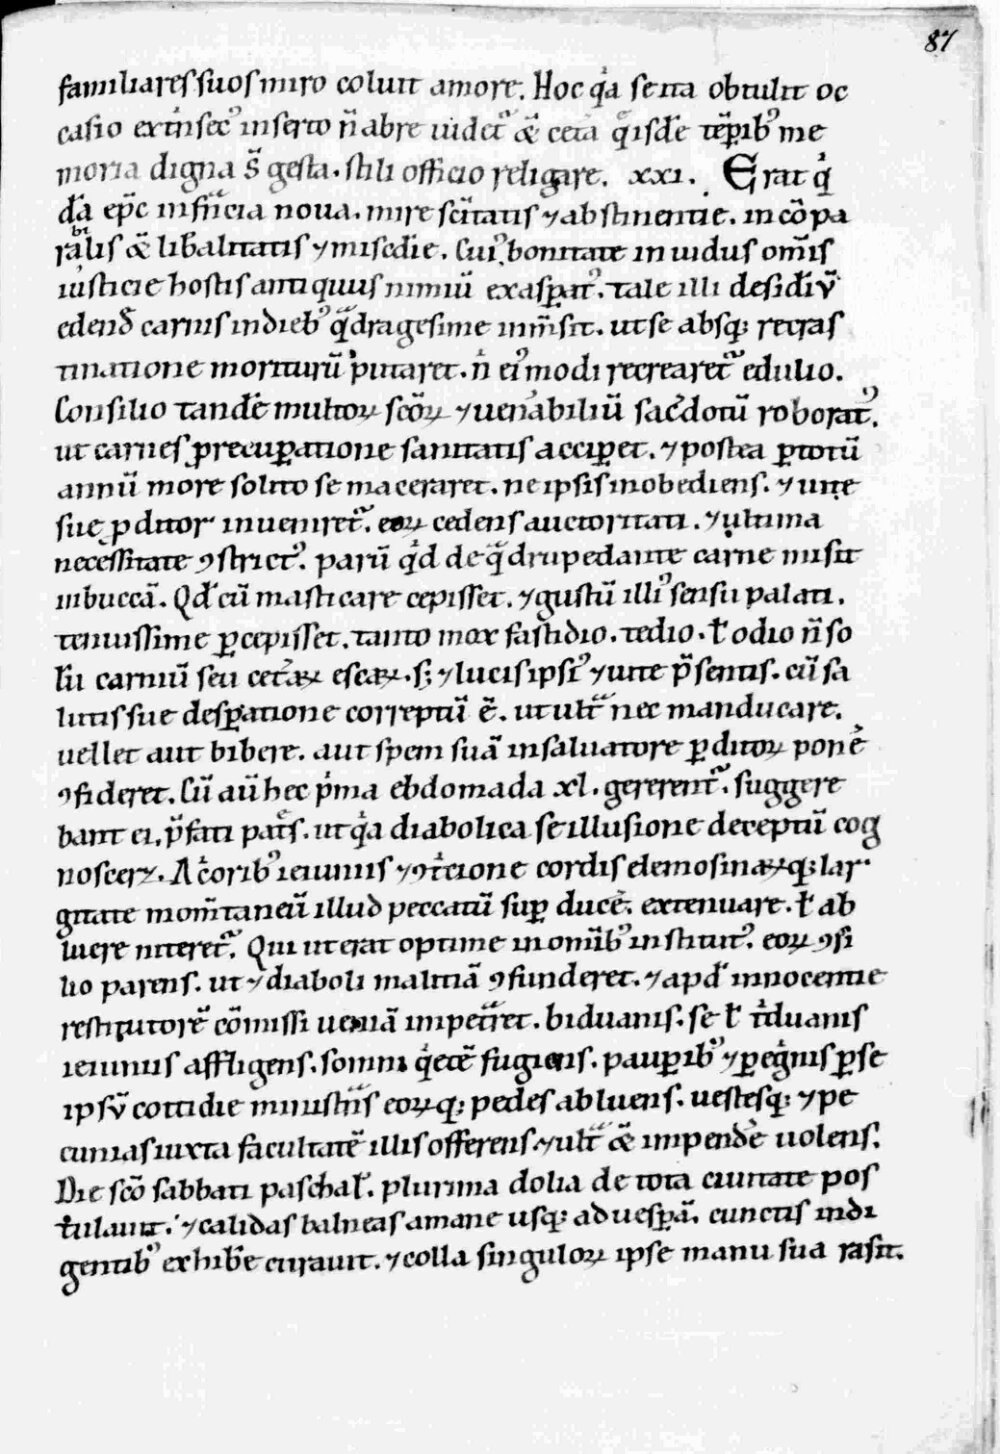 87
familiares suos miro coluit amore. Hoc qͥa se ita obtulit oc
casio extͥnsecꝰ inserto n̄ abre uidet᷑ & cet̾a qͥsdē tēꝑibꝰ me
moria digna s̄ gesta. stili officio religare. xxi. Erat qͥ
dā ep̄c in fͣncia noua. mire sc̄itatis ⁊ abstinentie. in cōpa
rabilis & lib̄alitatis ⁊ misc̄die. Cuiꝰ bonitate inuidus om̄is
iusticie hostis antiquus nimiū exasꝑatꝰ. tale illi desid̾iū
edendi carnis indiebꝰ qͣdragesime inm̄sit. ut se absq; retras
tinatione moriturū putaret. nͥ eiꝰmodi recrearet᷑ edulio.
Consilio tandē multoꝝ sc̄oꝝ ⁊ uen̾abiliū sac̾dotū roboratꝰ.
ut carnes ꝓ recuꝑatione sanitatis acciꝑet. ⁊ postea ꝑ totū
annū more solito se maceraret. ne ipsis inobediens. ⁊ uite
sue ꝓditor inueniret᷑. eoꝝ cedens auctoritati. ⁊ ultima
necessitate ꝯstrictꝰ. parū qͥd de qͣdrupedante carne misit
in buccā. Qd̾ cū masticare cepisset. ⁊ gustū illiꝰ sensu palati.
tenuissime ꝑcepisset. tanto mox fastidio. tedio. ł odio n̄ so
lū carniū seu cet̾aꝝ escaꝝ. s; ⁊ lucis ipsiꝰ ⁊ uite p̄sentis. cū sa
lutis sue desꝑatione correptū ē. ut ult̾ nec manducare.
uellet aut bibere. aut spem suā in saluatore ꝑditoꝝ pon̾e
ꝯfideret. Cū aū hec pͥma ebdomada xl. gererent᷑. suggere
bant ei p̄fati pat̾s. ut qͥa diabolica se illusione deceptū cog
nosceret. Acͥoribꝰ ieiuniis ⁊ ꝯtͥcione cordis elemosinaꝝq; lar
gitate mom̄taneū illud peccatū suꝑ duce. extenuare. ł ab
luere niteret᷑. Qui ut erat optime in om̄ibꝰ institutꝰ. eoꝝ ꝯsi
lio parens. ut ⁊ diaboli malitiā ꝯfunderet. ⁊ apd̾ innocentie
restitutorē cōmissi ueniā impetͣret. biduanis. se ł tͥduanis
ieiuniis affligens. somni qͥetē fugiens. pauꝑibꝰ ⁊ ꝑegͥnis ꝑ se
ipsū cottidie ministͣns eoꝝq; pedes abluens. uestesq; ⁊ pe
cunias iuxta facultatē illis offerens. ⁊ ult̾ & impend̾e uolens.
Die sc̄o sabbati paschal̾. plurima dolia de tota ciuitate pos
tulauit. ⁊ calidas balneas amane usq; ad uesꝑā. cunctis indi
gentibꝰ exhib̾e curauit. ⁊ colla singuloꝝ ipse manu sua rasit.